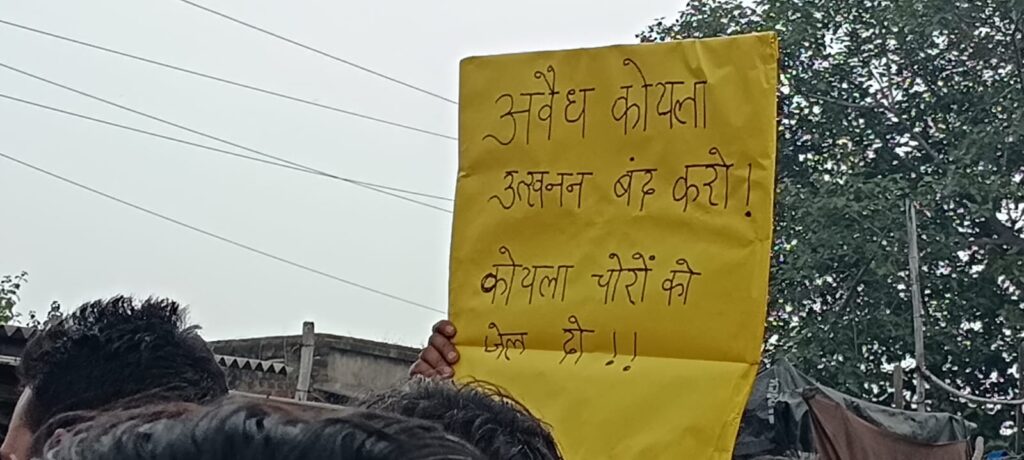 अवैध कोयला
उत्खनन बंद करो!
कोयला चोरों को
जेल दो!!